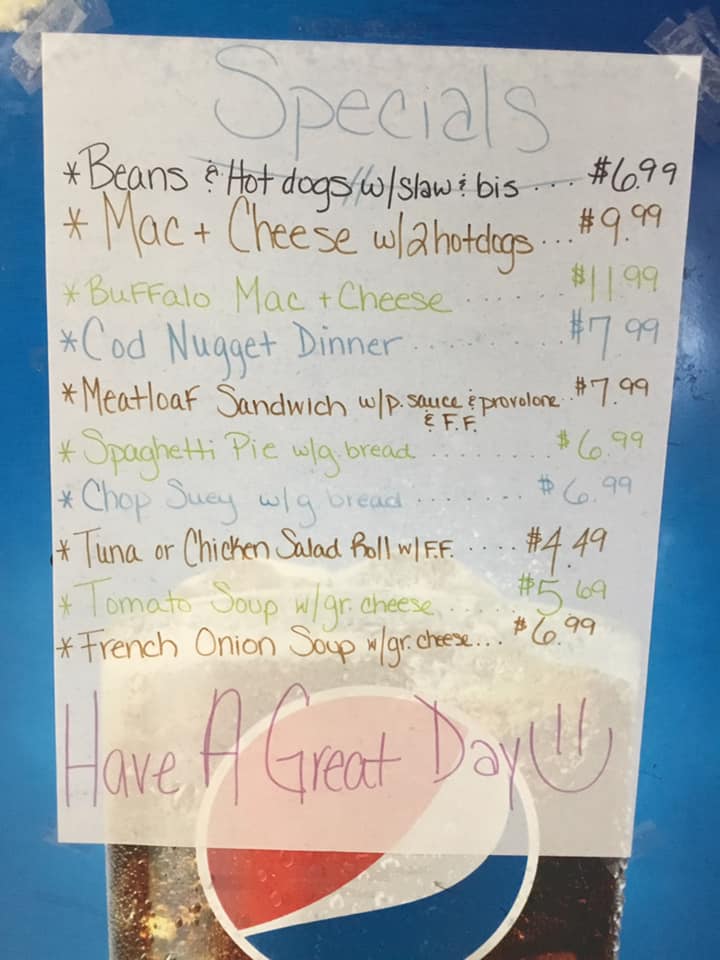 Specials
*Beans & Hot dogs w/slaw & bis ... $6.99
* Mac + Cheese w/2hotdogs ... $9.99
*Buffalo Mac + Cheese ...... $11.99
*Cod Nugget Dinner ......... $7.99
*Meatloaf Sandwich w/p. sauce & provolone .. $7.99
& F.F.
*Spaghetti Pie w/g. bread ........ $6.99
*Chop Suey w/g bread ....... $6.99
*Tuna or Chicken Salad Roll w/F.F. .... $4.49
*Tomato Soup w/gr. cheese ..... $5.69
*French Onion Soup w/gr. cheese ... $6.99
Have A Great Day!!